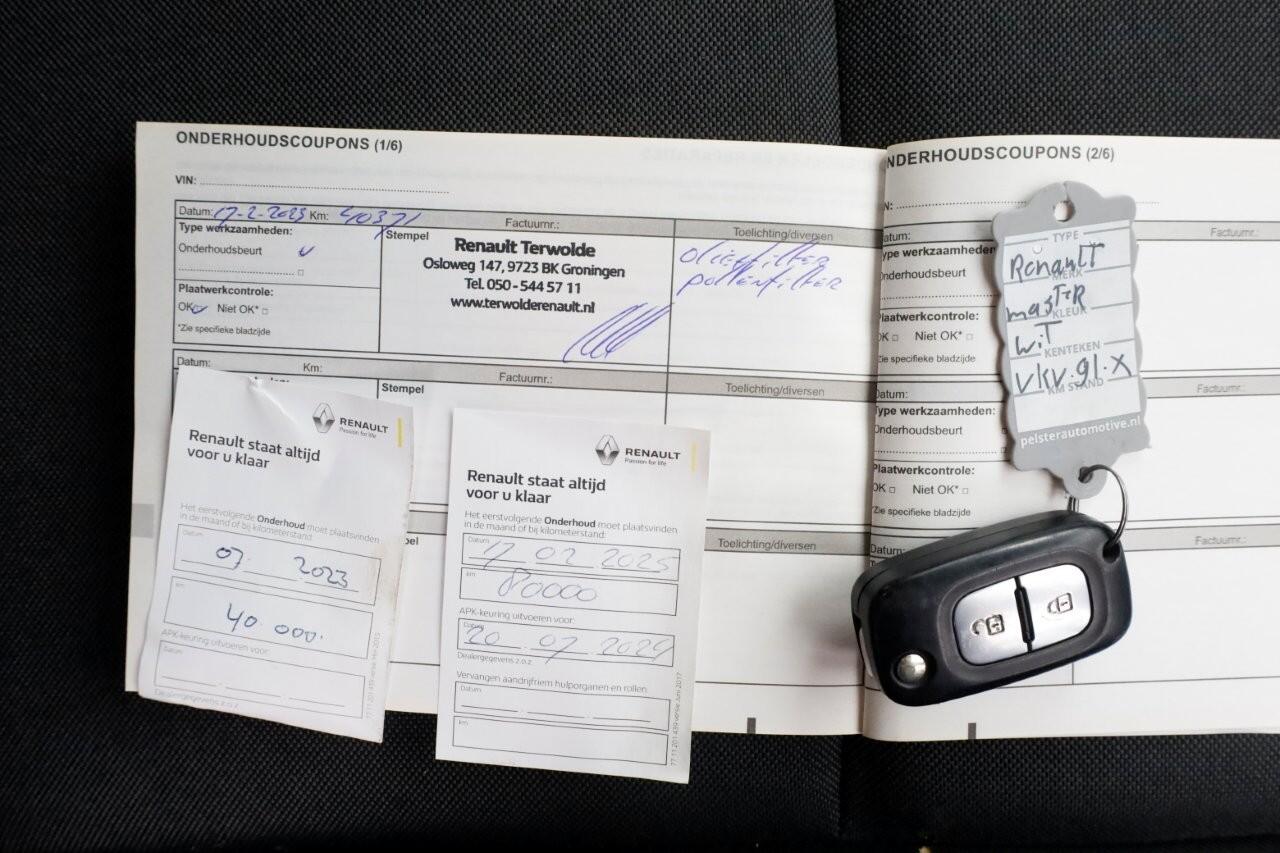 ONDERHOUDSCOUPONS (1/6)
VIN:
Datum: 17-2-2023 Km: 40371 Factuurnr.:
Type werkzaamheden:
Onderhoudsbeurt
Plaatwerkcontrole:
OK Niet OK*
*Zie specifieke bladzijde
Stempel
Renault Terwolde
Osloweg 147, 9723 BK Groningen
Tel. 050 - 544 57 11
www.terwolderenault.nl
Toelichting/diversen
oliefilter
pollenfilter
Datum: Km: Factuurnr.:
Stempel
Toelichting/diversen
Toelichting/diversen
RENAULT
Passion for life
Renault staat altijd
voor u klaar
Het eerstvolgende Onderhoud moet plaatsvinden
in de maand of bij kilometerstand:
Datum
07. 2023
km
40 000.
APK-keuring uitvoeren voor:
Datum
Dealergegevens z.o.z.
RENAULT
Passion for life
Renault staat altijd
voor u klaar
Het eerstvolgende Onderhoud moet plaatsvinden
in de maand of bij kilometerstand:
Datum
17 02 2025
km
80000
APK-keuring uitvoeren voor:
Datum
20 07 2024
Dealergegevens z.o.z.
Vervangen aandrijfriem hulporganen en rollen:
Datum
km
77 11 201 439 versie juni 2017
NDERHOUDSCOUPONS (2/6)
N:
atum: Factuurnr.:
ype werkzaamheden
Onderhoudsbeurt
Plaatwerkcontrole:
OK Niet OK*
Zie specifieke bladzijde
Datum: Factuurnr.:
Type werkzaamheden:
Onderhoudsbeurt
Plaatwerkcontrole:
OK Niet OK*
*Zie specifieke bladzijde
Datum: Factuurnr.:
TYPE
Renault
MERK
masteR
KLEUR
wiT
KENTEKEN
VKV.91.X
KM STAND
pelsterautomotive.nl